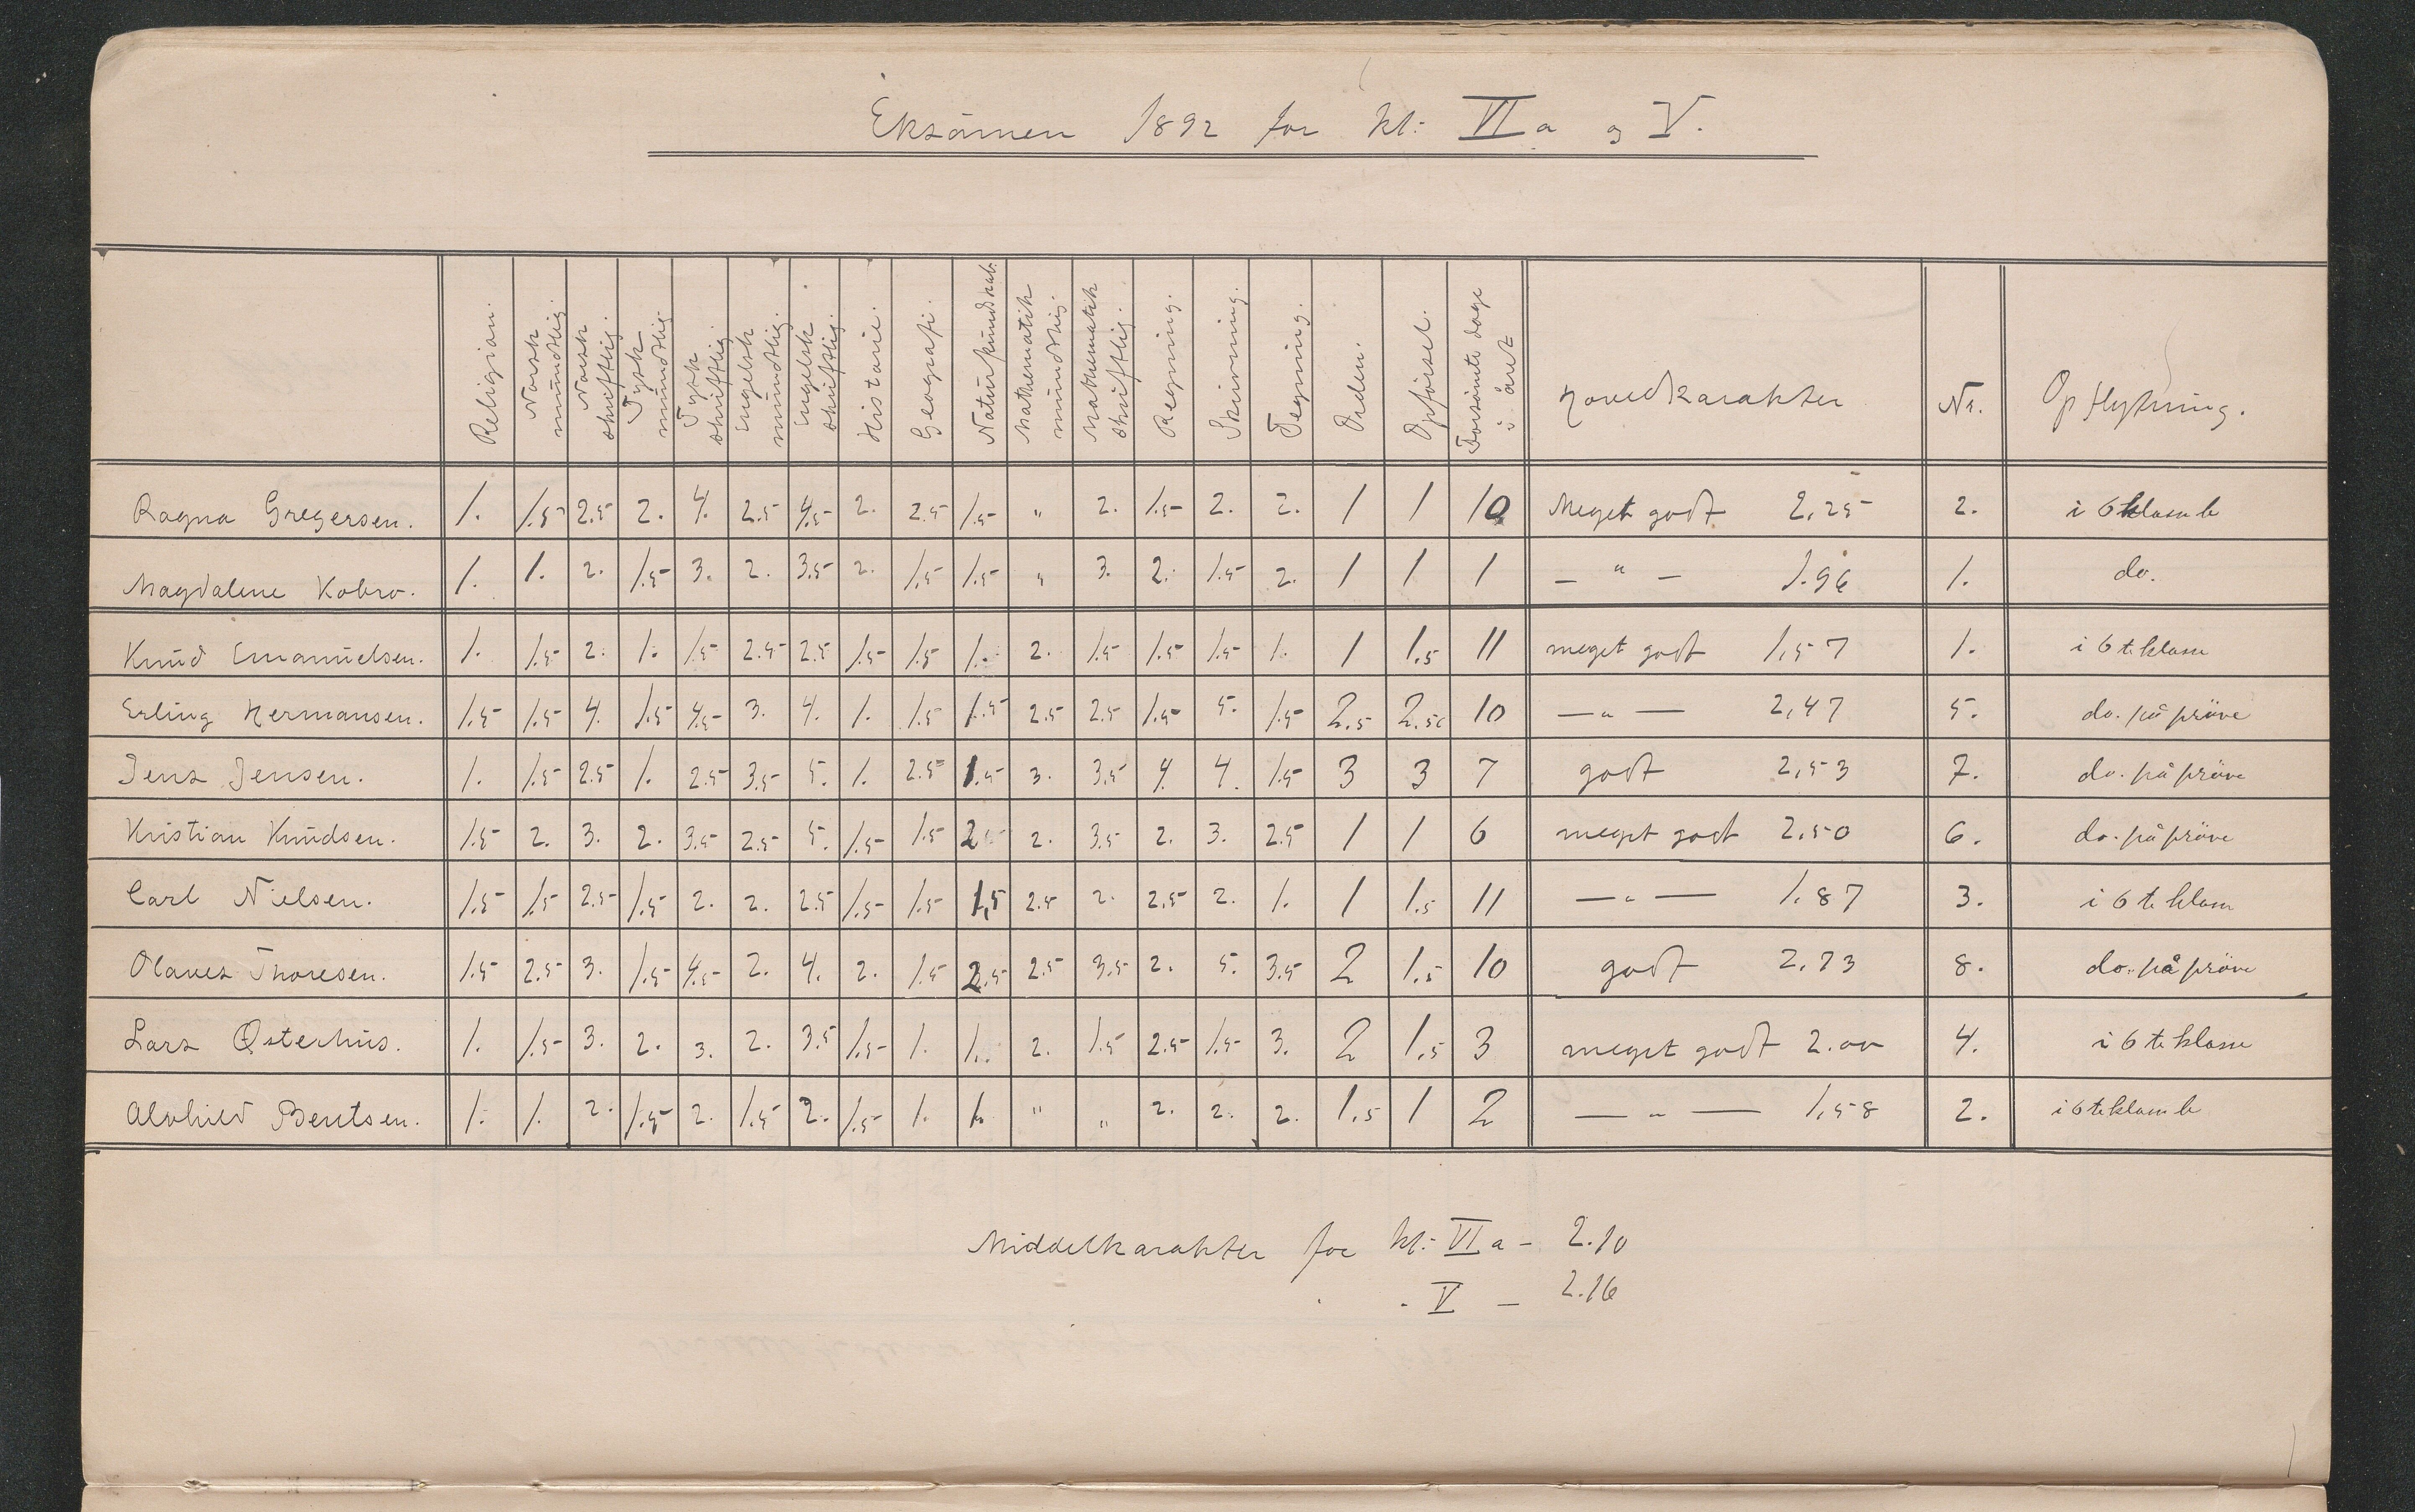 Eksamen 1892 for kl: VI a og V.
Religion. | Norsk mundtlig. | Norsk skriftlig. | Tysk mundtlig. | Tysk skriftlig. | Engelsk mundtlig. | Engelsk skriftlig. | Historie. | Geografi. | Naturkundskab. | Mathematik mundtlig. | Mathematik skriftlig. | Regning. | Skrivning. | Tegning. | Orden. | Opförsel. | Forsömte dage i året | Hovedkarakter | Nr. | Opflytning.
Ragna Gregersen. | 1. | 1.5 | 2.5 | 2. | 4. | 2.5 | 4.5 | 2. | 2.5 | 1.5 | " | 2. | 1.5 | 2. | 2. | 1 | 1 | 10 | Meget godt 2,25 | 2. | i 6 klasse b
Magdalene Kobro. | 1. | 1. | 2. | 1.5 | 3. | 2. | 3.5 | 2. | 1.5 | 1.5 | " | 3. | 2. | 1.5 | 2. | 1 | 1 | 1 | — " — 1.96 | 1. | do.
Knud Emanuelsen. | 1. | 1.5 | 2. | 1. | 1.5 | 2.5 | 2.5 | 1.5 | 1.5 | 1. | 2. | 1.5 | 1.5 | 1.5 | 1. | 1 | 1.5 | 11 | meget godt 1,57 | 1. | i 6te klasse
Erling Hermansen. | 1.5 | 1.5 | 4. | 1.5 | 4.5 | 3. | 4. | 1. | 1.5 | 1.5 | 2.5 | 2.5 | 1.5 | 5. | 1.5 | 2.5 | 2.5 | 10 | — " — 2,47 | 5. | do. på pröve
Jens Jensen. | 1. | 1.5 | 2.5 | 1. | 2.5 | 3.5 | 5. | 1. | 2.5 | 1.5 | 3. | 3.5 | 4. | 4. | 1.5 | 3 | 3 | 7 | godt 2,53 | 7. | do. på pröve
Kristian Knudsen. | 1.5 | 2. | 3. | 2. | 3.5 | 2.5 | 5. | 1.5 | 1.5 | 2 | 2. | 3.5 | 2. | 3. | 2.5 | 1 | 1 | 6 | meget godt 2,50 | 6. | do. på pröve
Carl Nielsen. | 1.5 | 1.5 | 2.5 | 1.5 | 2. | 2. | 2.5 | 1.5 | 1.5 | 1,5 | 2.5 | 2. | 2.5 | 2. | 1. | 1 | 1.5 | 11 | — " — 1.87 | 3. | i 6te klasse
Olaves Thoresen. | 1.5 | 2.5 | 3. | 1.5 | 4.5 | 2. | 4. | 2. | 1.5 | 2.5 | 2.5 | 3.5 | 2. | 5. | 3.5 | 2 | 1.5 | 10 | godt 2,73 | 8. | do. på pröve
Lars Østerhus. | 1. | 1.5 | 3. | 2. | 3. | 2. | 3.5 | 1.5 | 1. | 1. | 2. | 1.5 | 2.5 | 1.5 | 3. | 2 | 1.5 | 3 | meget godt 2.00 | 4. | i 6te klasse
Alvhild Bentsen. | 1. | 1. | 2. | 1.5 | 2. | 1.5 | 2. | 1.5 | 1. | 1. | " | " | 2. | 2. | 2. | 1.5 | 1 | 2 | — " — 1,58 | 2. | i 6te klasse b
Middelkarakter for kl: VI a – 2.10
" V – 2.16